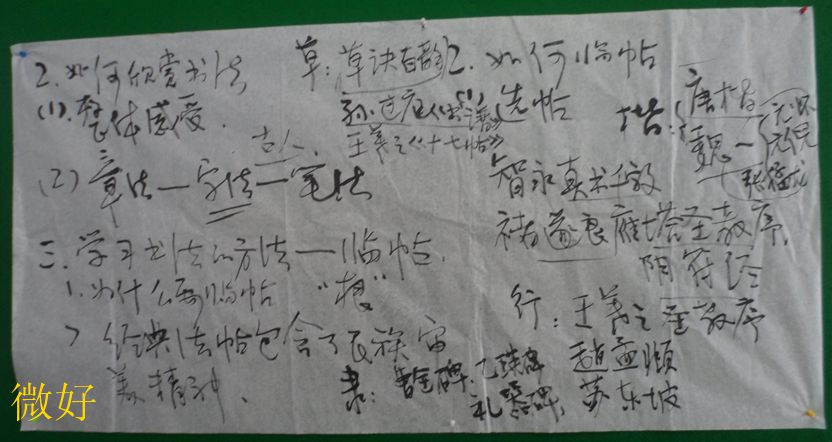 2. 如何欣赏书法
(1). 整体感受.
古人
(2) 章法一字法一笔法
三. 学习书法的方法——临帖.
1. 为什么要临帖 “根”
经典法帖包含了民族审
美精神.
草: 草诀百韵
孙过庭《书谱》
王羲之《十七帖》
2. 如何临帖
(1) 选帖
楷: 唐楷
魏一
张猛龙
智永真书千
褚遂良雁塔圣教序,
阴符经
行: 王羲之圣教序
赵孟頫
苏东坡
隶: 曹全碑, 乙瑛碑
礼器碑,
微好